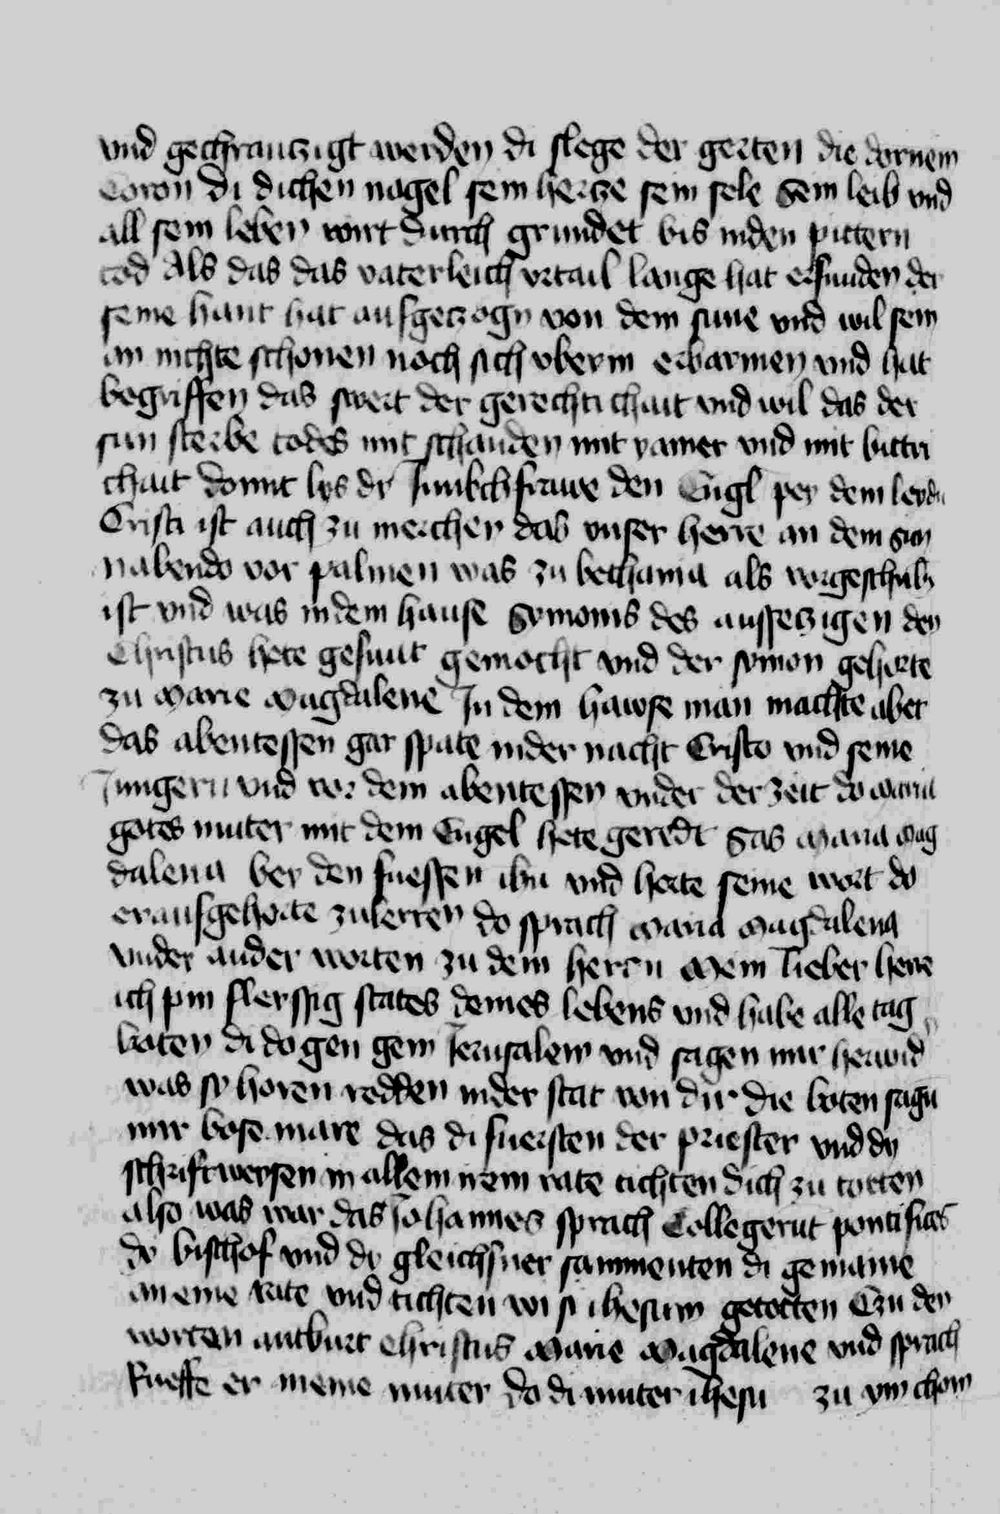 vnd gechrauczigt werden di slege der gerten die dornein
Coron di dichen nagel sein hertze sein sele Sein leib vnd
all sein leben wirt durch grundet bis inden pittern
tod Als das das vaterleich vrtail lange hat erfunden der
seine hant hat aufgeczogn von dem sune vnd wil sein
an nichte schonen noch sich vberin erbarmen vnd hat
begriffen das swert der gerechtichait vnd wil das der
sun sterbe todes mit schanden mit yamer vnd mit bittri
chait domit lys dy Junkchfrawe den Engl pey dem leydn
Cristi ist auch zu merchen das vnser herre an dem sun
nabendo vor palmen was zu bethania als vorgeschribn
ist vnd was indem hause Symonis des aussetzigen den
Christus hete gesunt gemocht vnd der symon gehorte
zu Marie Magdalene In dem hawse man machte aber
das abentessen gar spate inder nacht Cristo vnd seine
Jungern vnd vor dem abentessen vnder der zeit do maria
gotes muter mit dem Engel hete geredt Sas Maria Mag
dalena bey den fuessen ihu vnd horte seine wort do
er aufgehorte zulerren do sprach Maria Magdalena
vnder ander worten zu dem herrn Mein lieber herre
ich pin fleyssig states deines lebens vnd habe alle tag
boten di do gen gein Jerusalem vnd sagen mir herwid
was sy horen redden inder stat von dir die boten sagn
mir bose mare das di fuersten der priester vnd dy
schriftweysen in allem irem rate tichten dich zu totten
also was war das Johannes sprach Collegerut pontifices
dy bischof vnd dy gleichsner sammenten di gemaine
an eine rate vnd tichten wi si ihesum getotten Czu den
worten antburt Christus Marie Magdalene vnd sprach
Rueffe er meine muter do di muter ihesu zu ym chom